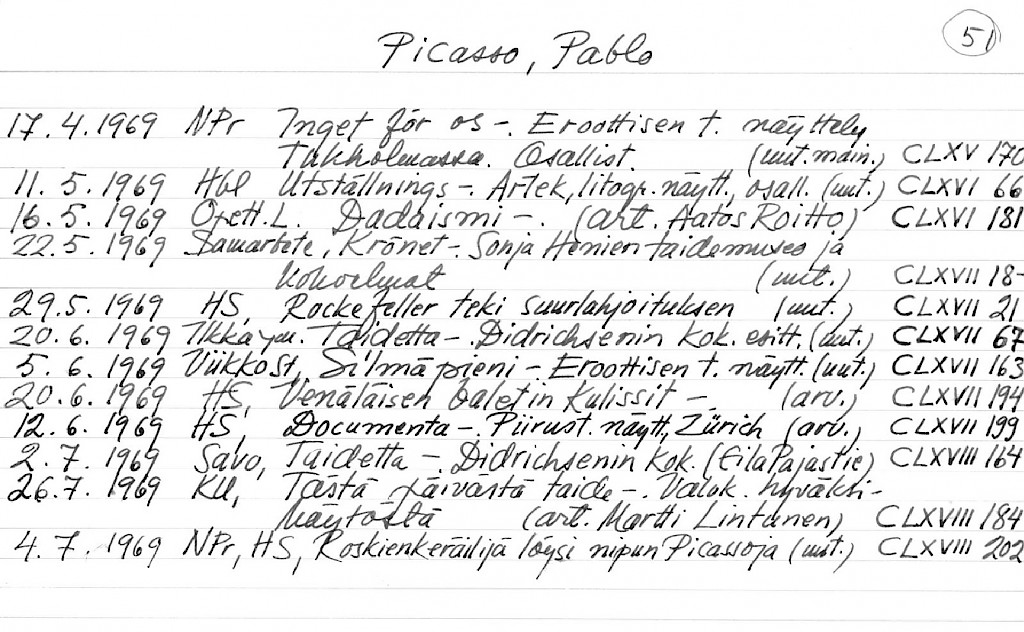 51
Picasso, Pablo
17.4.1969 NPr Inget för os -. Eroottisen t. näyttely
Tukholmassa. Osallist. (uut.main.) CLXV 170
11.5.1969 Hbl Utställnings -. Artek, litogr. näytt., osall. (uut.) CLXVI 66
16.5.1969 Opett.L. Dadaismi -. (art. Aatos Roitto) CLXVI 181
22.5.1969 Samarbete, Krönet - Sonja Henien taidemuseo ja
kokoelmat (uut.) CLXVII 18-
29.5.1969 HS, Rockefeller teki suurlahjoituksen (uut.) CLXVII 21
20.6.1969 Ilkka ym. Taidetta -. Didrichsenin kok. esitt. (uut.) CLXVII 67
5.6.1969 ViikkoSt, Silmäpieni - Eroottisen t. näytt. (uut.) CLXVII 163
20.6.1969 HS, Venäläisen baletin kulissit -. (arv.) CLXVII 194
12.6.1969 HS, Documenta -. Piirust. näytt., Zürich (arv.) CLXVII 199
2.7.1969 Savo, Taidetta -. Didrichsenin kok. (Eila Pajastie) CLXVIII 164
26.7.1969 KU, Tästä päivästä taide -. Valok. hyväksi-
käytöstä (art. Martti Lintunen) CLXVIII 184
4.7.1969 NPr, HS, Roskienkeräilijä löysi nipun Picassoja (uut.) CLXVIII 202